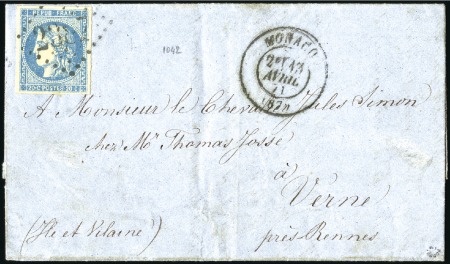 REPUB. FRANC.
20C. POSTES 20C.
1042
MONACO
2E 13
AVRIL
71
A Monsieur le Chevalier Jules Simon
chez Mr Thomas Josse
à
Verne
près Rennes
(Ile et Vilaine)